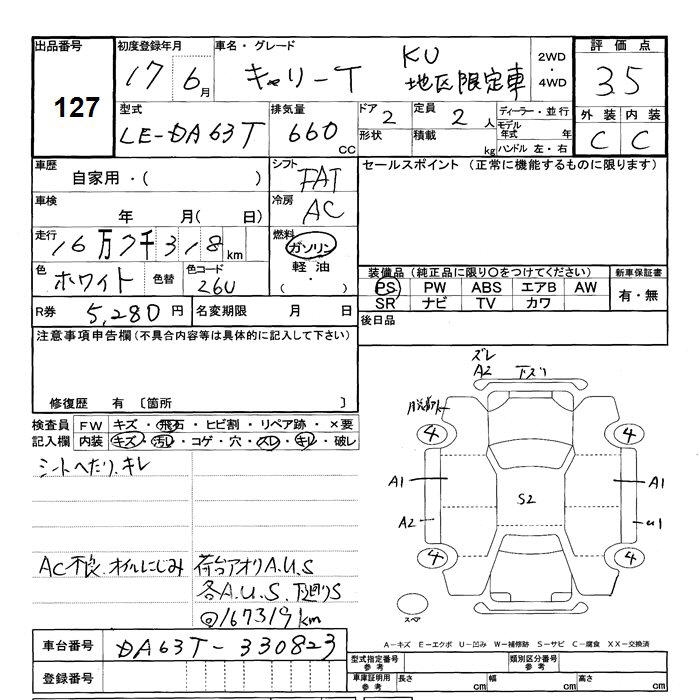 出品番号 初度登録年月 車名・グレード 評価点
127
17 6月 キャリーT KU 地区限定車 2WD・4WD 3.5
型式 排気量 ドア 定員 ディーラー・並行 外装 内装
LE-DA63T 660cc 2 2人 モデル年式 年 C C
形状 積載 kg ハンドル 左・右
車歴 シフト セールスポイント (正常に機能するものに限ります)
自家用・( ) FAT
車検 冷房
年 月( 日) AC
走行 16万7千318km 燃料
ガソリン
軽油
( ・ )
色 色替 色コード
ホワイト 26U
装備品 (純正品に限り○をつけてください) 新車保証書
PS PW ABS エアB AW 有・無
SR ナビ TV カワ
R券 5,280円 名変期限 月 日 後日品
注意事項申告欄 (不具合内容等は具体的に記入して下さい)
修復歴 有 〔箇所 〕
検査員記入欄 FW キズ・飛石・ヒビ割・リペア跡・×要
内装 キズ・汚レ・コゲ・穴・スレ・キレ・破レ
シートへたり.キレ
AC不良.オイルにじみ 荷台アオリA.U.S
各A.U.S.下廻りS
◎167319km
ズレ
A2 下ズリ
4 4
A1 A1
S2
A2 u1
4 4
スペア
A-キズ E-エクボ U-凹み W-補修跡 S-サビ C-腐食 XX-交換済
車台番号 DA63T-330823
型式指定番号 参考 類別区分番号 参考
登録番号
車庫証明用 参考 長さ cm 幅 cm 高さ cm